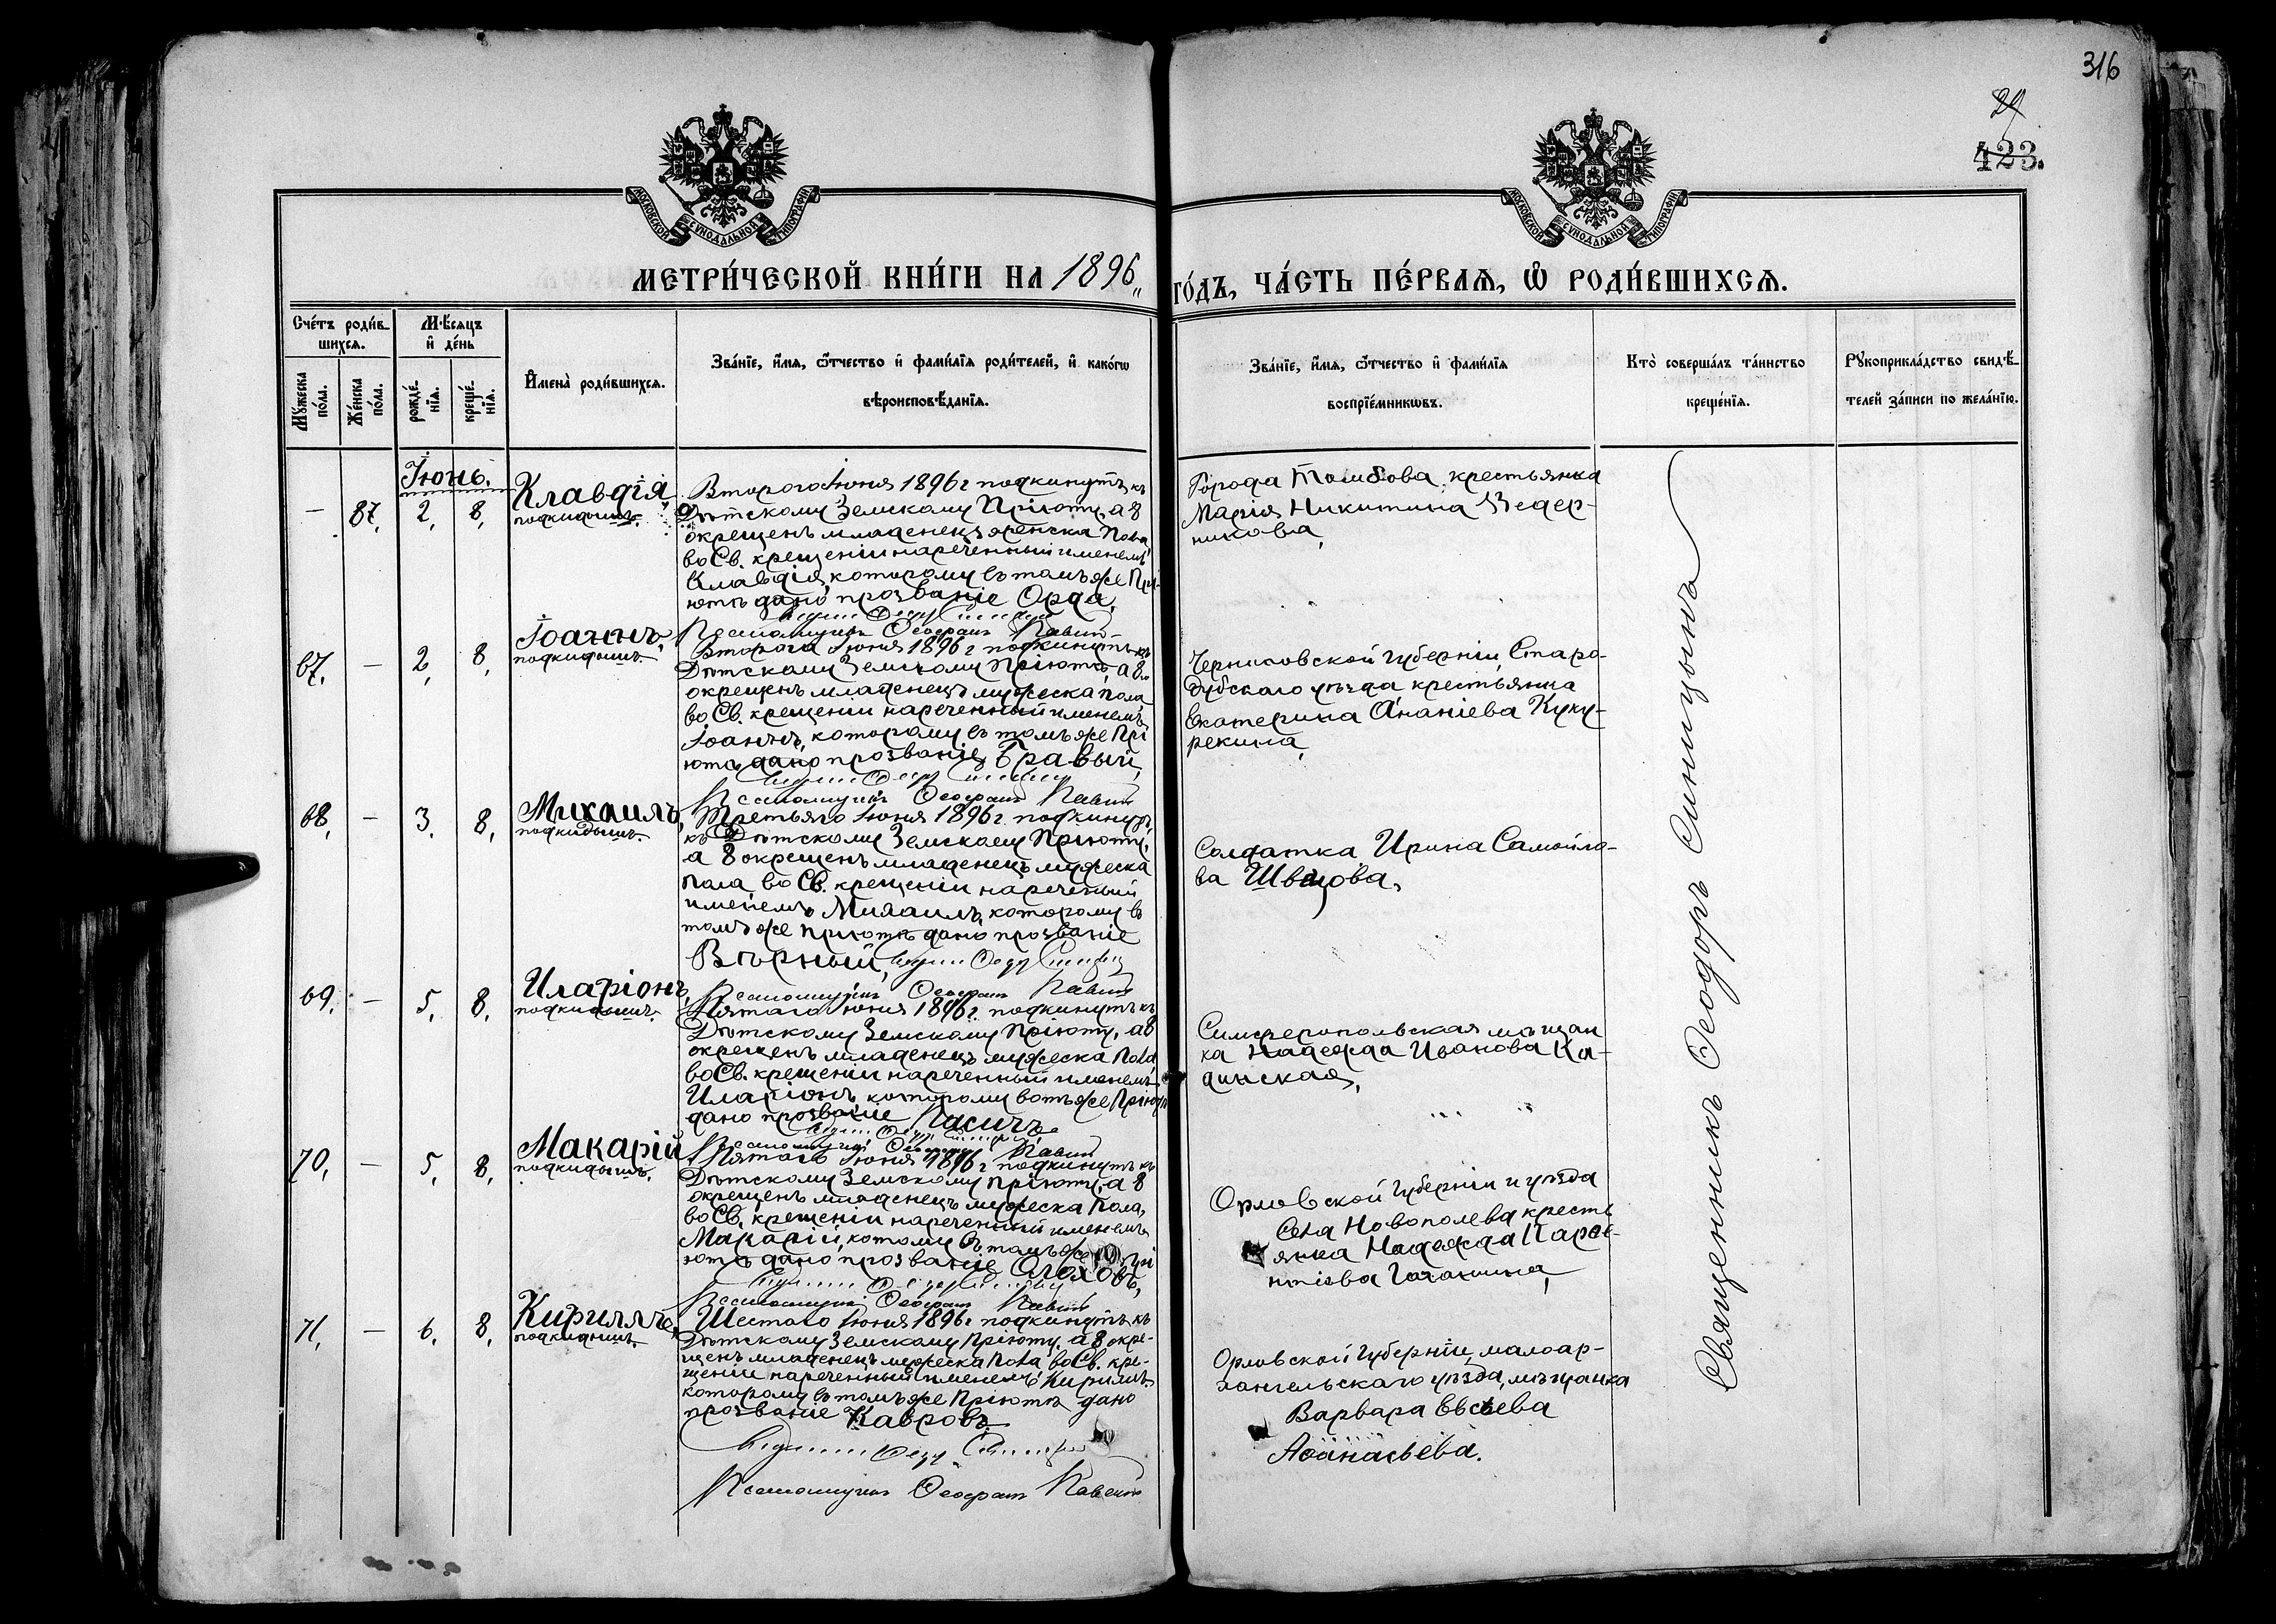 316
29
423.
МОСКОВСКОЙ СУНОДАЛЬНОЙ ТИПОГРАФІИ
МОСКОВСКОЙ СУНОДАЛЬНОЙ ТИПОГРАФІИ
МЕТРИ́ЧЕСКОЙ КНИ́ГИ НА 1896
ГО́ДЪ, ЧА́СТЬ ПЕ́РВАѦ, Ѽ РОДИ́ВШИХСѦ.
Сче́тъ роди́в-
шихсѧ.
Мꙋ́жеска
по́ла.
Же́нска
по́ла.
Мѣ́сяцъ
и́ де́нь
рожде́-
нїѧ.
креще́-
нїѧ.
И҆мена̀ роди́вшихсѧ.
Зва́нїе, и҆́мѧ, ѻ҆́тчество и҆ фами́лїѧ роди́телей, и҆ како́гѡ
вѣроисповѣ́данїѧ.
Зва́нїе, и҆́мѧ, ѻ҆́тчество и҆ фами́лїѧ
воспрїе́мникѡвъ.
Кто̀ соверша́лъ та́инство
креще́нїѧ.
Рꙋкоприкла́дство свидѣ́-
телей за́писи по жела́нїю.
Іюнь.
– 87. 2, 8,
Клавдія
подкидышъ.
Второго Іюня 1896 г подкинутъ къ
Дѣтскому Земскому Пріюту, а 8
окрещенъ младенецъ женска пола
во Св. крещеніи нареченный именемъ
Клавдія, которому въ томъ же Прі-
ютѣ дано прозваніе Орда,
Псаломщикъ
Города Тамбова крестьянка
Марія Никитина Ведер-
никова,
67. – 2, 8,
Іоаннъ,
подкидышъ.
Второго Іюня 1896 г подкинутъ къ
Дѣтскому Земскому Пріюту, а 8
окрещенъ младенецъ мужеска пола
во Св. крещеніи нареченный именемъ
Іоаннъ, которому въ томъ же Прі
ютѣ дано прозваніе Бравый,
Псаломщикъ
Черниговской губерніи, Старо-
дубскаго уѣзда крестьянка
Екатерина Ананіева Куку-
рекина,
68, – 3, 8,
Михаилъ,
подкидышъ.
Третьяго Іюня 1896 г. подкинутъ
къ Дѣтскому Земскому Пріюту,
а 8 окрещенъ младенецъ мужеска
пола во Св. крещеніи нареченный
именемъ Михаилъ, которому въ
томъ же Пріютѣ дано прозваніе
Вѣрный,
Псаломщикъ
Солдатка Ирина Самойло-
ва Швецова,
69. – 5, 8,
Иларіонъ,
подкидышъ.
Пятаго Іюня 1896 г. подкинутъ къ
Дѣтскому Земскому Пріюту, а 8
окрещенъ младенецъ мужеска пола
во Св. крещеніи нареченный именемъ
Иларіонъ, которому
дано прозваніе
Псаломщикъ
Симферопольская мѣщан
ка Надежда Иванова Ка-
динская,
70, – 5, 8,
Макарій
подкидышъ.
Пятаго Іюня 1896 г подкинутъ къ
Дѣтскому Земскому Пріюту, а 8
окрещенъ младенецъ мужеска пола,
во Св. крещеніи нареченный именемъ
Макарій, котому въ томъ же Прі
ютѣ дано прозваніе
Псаломщикъ
Орловской губерніи и уѣзда
Села Новополева кресть
янка Надежда
71, – 6, 8,
Кириллъ,
подкидышъ.
Шестаго Іюня 1896 г подкинутъ къ
Дѣтскому Земскому Пріюту, а 8 окре-
щенъ младенецъ мужеска пола во Св. кре-
щеніи нареченный именемъ Кириллъ
которому въ томъ же Пріютѣ дано
прозваніе Кавровъ
Псаломщикъ
Орловской губерніи, малоар-
хангельскаго уѣзда, мѣщанка
Варвара Евсѣева
Аѳанасьева.
Священникъ Ѳеодоръ Синицынъ